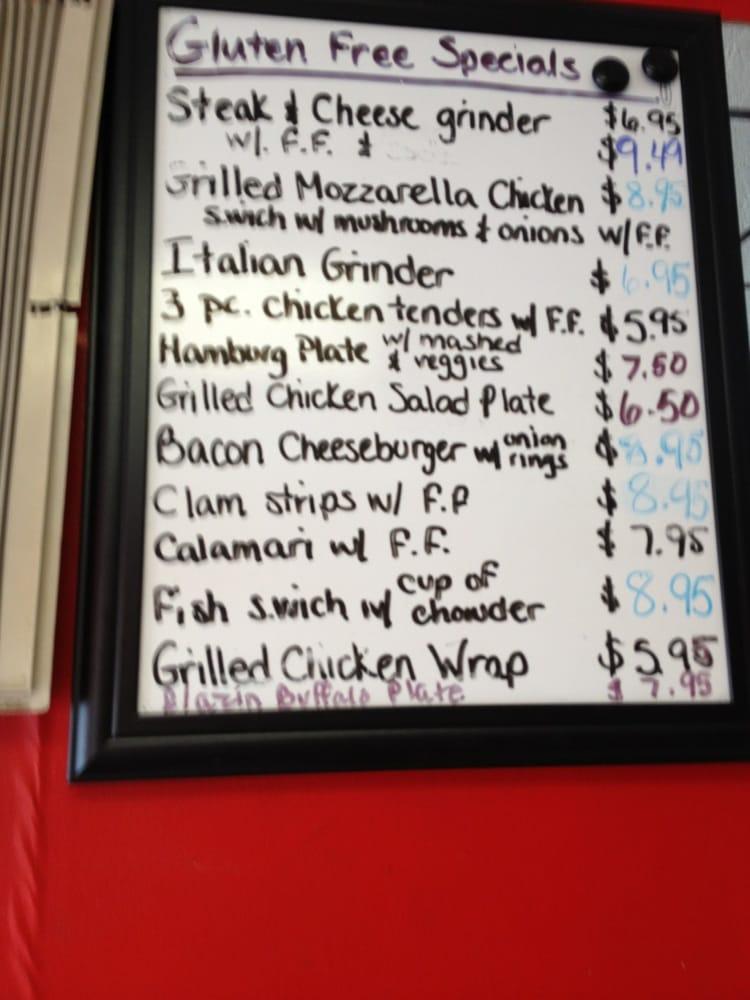 Gluten Free Specials
Steak & Cheese grinder $6.95
w/. F.F. & $9.49
Grilled Mozzarella Chicken $8.95
S.wich w/ mushrooms & onions w/F.F.
Italian Grinder $6.95
3 pc. chicken tenders w/ F.F. $5.95
Hamburg Plate w/ mashed & veggies $7.50
Grilled Chicken Salad Plate $6.50
Bacon Cheeseburger w/ onion rings $8.95
Clam strips w/ F.F $8.95
Calamari w/ F.F. $7.95
Fish S.wich w/ cup of chowder $8.95
Grilled Chicken Wrap $5.95
Blazin Buffalo Plate $7.95